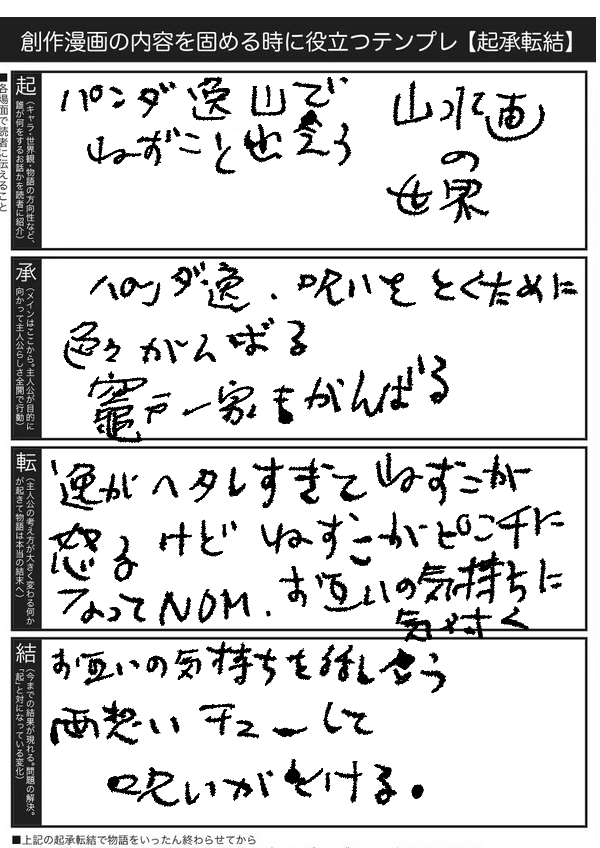 創作漫画の内容を固める時に役立つテンプレ【起承転結】
■各場面で読者に伝えること
起
(キャラ・世界観・物語の方向性など、
誰が何をするお話かを読者に紹介)
パンダ逸 山で
ねずこと出会う
山水画
の
世界
承
(メインはここから。主人公が目的に
向かって主人公らしさ全開で行動)
パンダ逸、呪いをとくために
色々がんばる
竈戸一家もがんばる
転
(主人公の考え方が大きく変わる何か
が起きて物語は本当の結末へ)
逸がヘタレすぎてねずこが
怒る けど ねずこがピンチに
なってNOM. お互いの気持ちに
気付く
結
(今までの結果が現れる。問題の解決。
「起」と対になっている変化)
お互いの気持ちを話し合う
両想い チューして
呪いがとける。
■上記の起承転結で物語をいったん終わらせてから